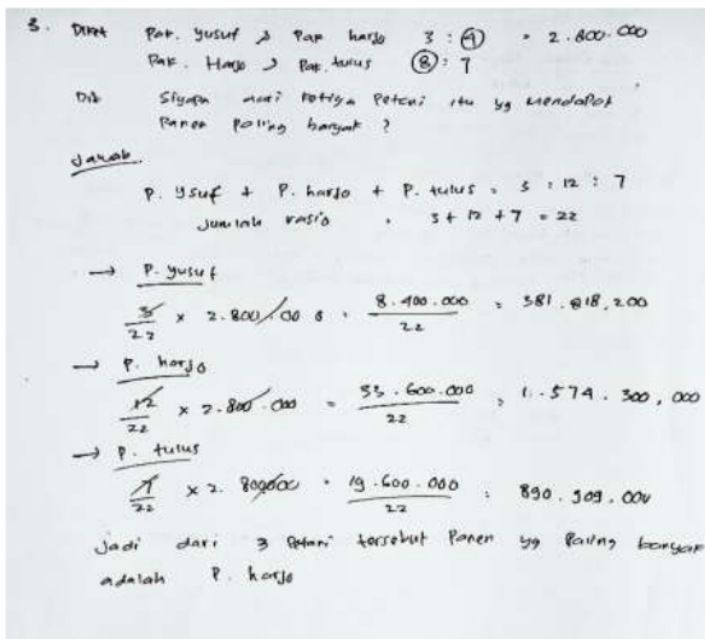 3. Diket Pak. Yusuf & Pak harjo 3 : 4 = 2.800.000
Pak. Harjo & Pak. tulus 8 : 7
Dit Siapa dari ketiga Petani itu yg mendapat
Panen Paling banyak ?
Jawab
P. Ysuf + P. harjo + P. tulus = 3 : 12 : 7
Jumlah rasio = 3 + 12 + 7 = 22
→ P. yusuf
3/22 × 2.800.000 = 8.400.000/22 = 381.818,200
→ P. harjo
12/22 × 2.800.000 = 33.600.000/22 = 1.574.300,000
→ P. tulus
7/22 × 2.800000 = 19.600.000/22 = 890.909,00
Jadi dari 3 Petani tersebut Panen yg Paling banyak
adalah P. harjo